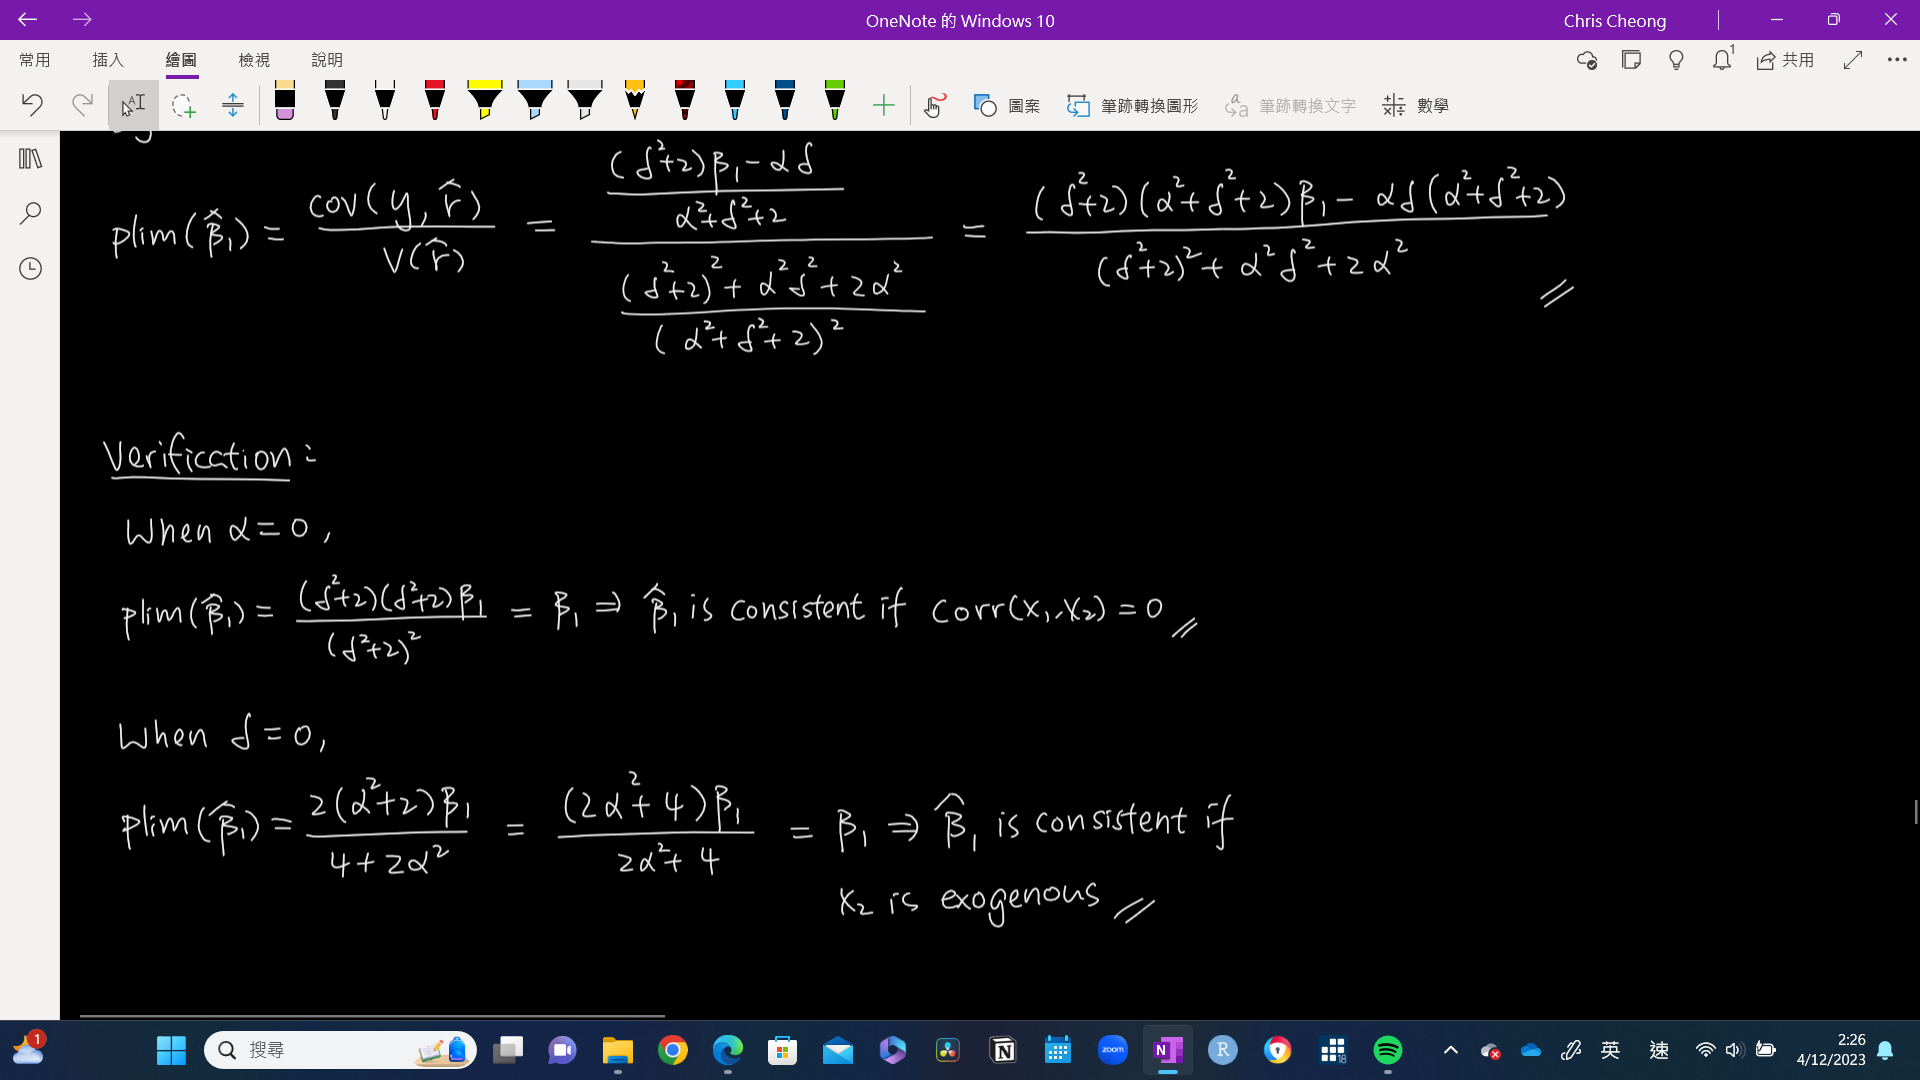 OneNote 的 Windows 10
Chris Cheong
常用 插入 繪圖 檢視 說明
1
共用
圖案 筆跡轉換圖形 筆跡轉換文字 數學
plim(β̂₁) = cov(y, r̂) / V(r̂) = [((δ²+2)β₁ - αδ) / (α²+δ²+2)] / [((δ²+2)² + α²δ² + 2α²) / (α²+δ²+2)²] = ((δ²+2)(α²+δ²+2)β₁ - αδ(α²+δ²+2)) / ((δ²+2)² + α²δ² + 2α²) //
Verification:
When α=0,
plim(β̂₁) = (δ²+2)(δ²+2)β₁ / (δ²+2)² = β₁ ⇒ β̂₁ is consistent if corr(x₁,x₂) = 0 //
When δ=0,
plim(β̂₁) = 2(α²+2)β₁ / (4+2α²) = (2α²+4)β₁ / (2α²+4) = β₁ ⇒ β̂₁ is consistent if
x₂ is exogenous //
1
搜尋
zoom
N
R
18
英
速
2:26
4/12/2023